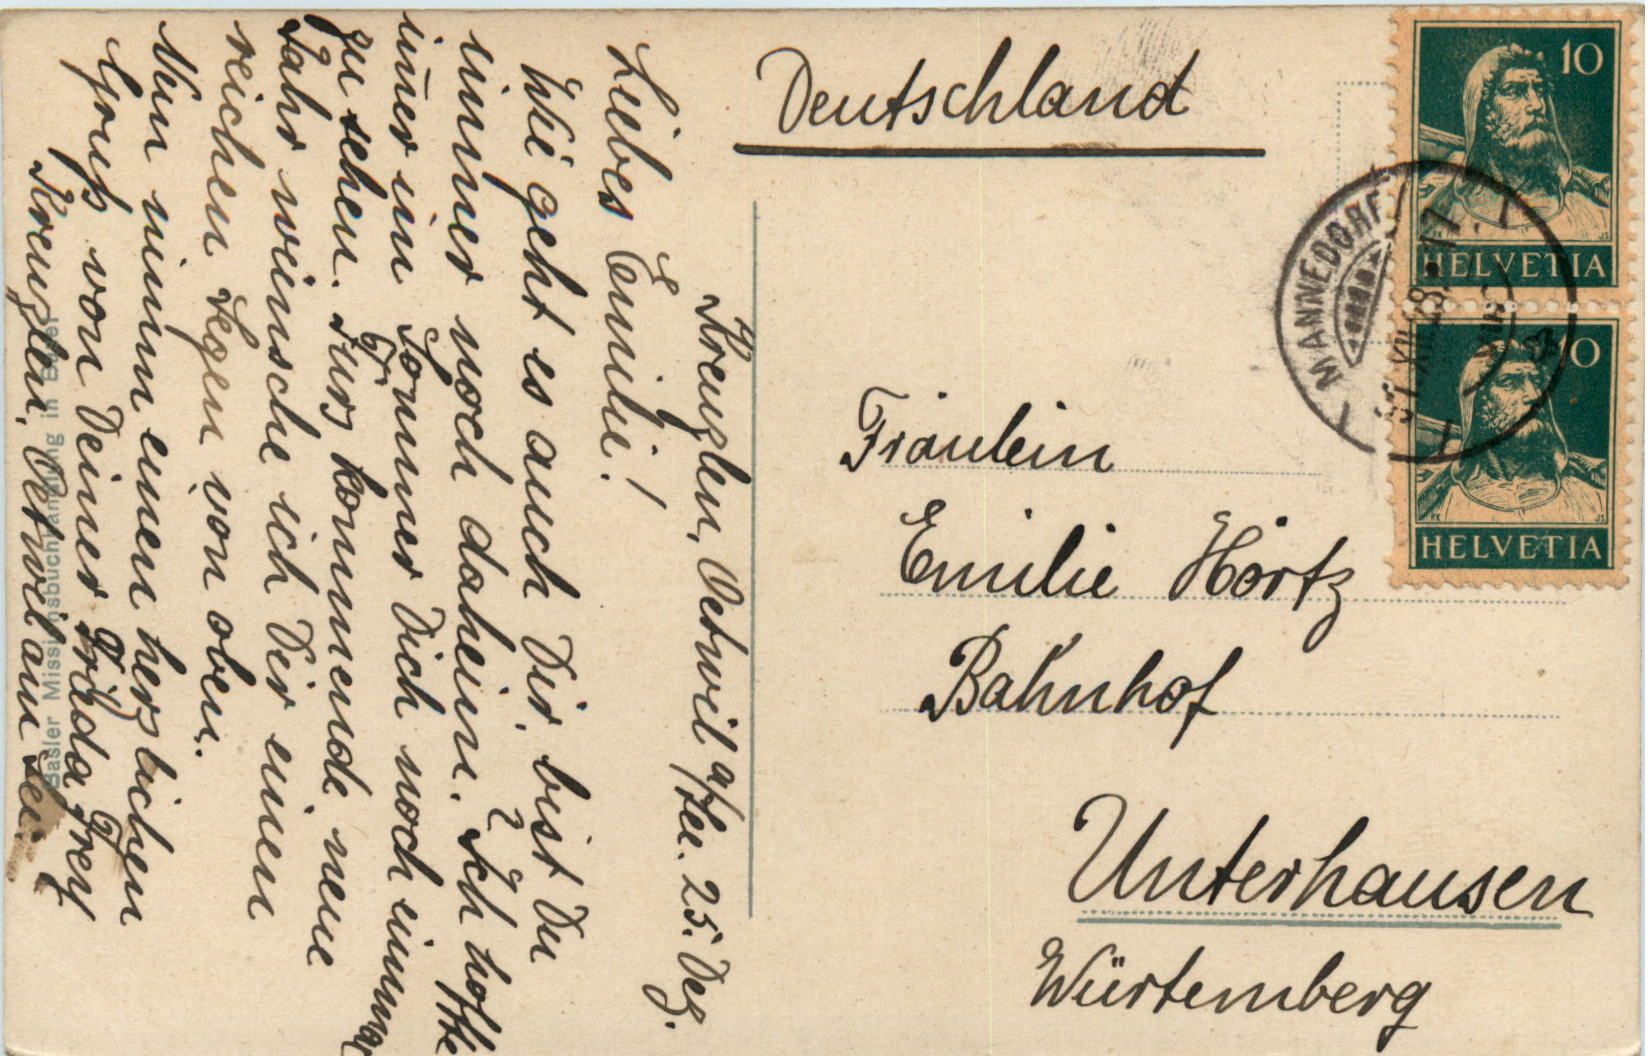 Kreuzlen, Oetwil a/See. 25. Dez.
Liebes Emilie!
Wie geht es auch Dir, bist Du
immer noch daheim? Ich hoffe
im̅er im Sommer Dich noch einmal
zu sehen. Fürs kommende neue
Jahr wünsche ich Dir einen
reichen Segen von oben.
Nun nimm einen herzlichen
Gruß von Deiner Frieda Frey
Kreuzlen, Oetwil am See.
Basler Missionsbuchhandlung in Basel
Deutschland
10
HELVETIA
10
HELVETIA
MÄNNEDORF
31.XII.28.-17
Fräulein
Emilie Hörtz
Bahnhof
Unterhausen
Würtemberg